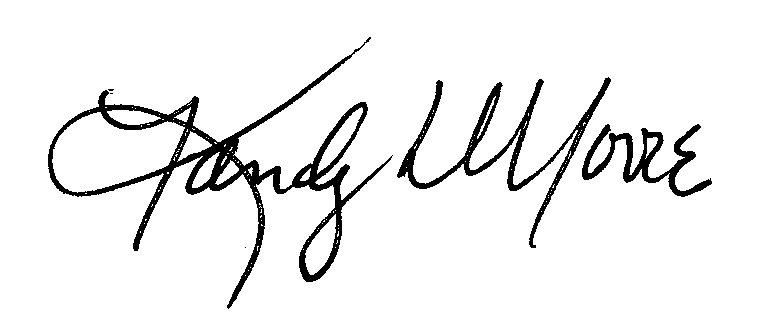 Randy D Moore